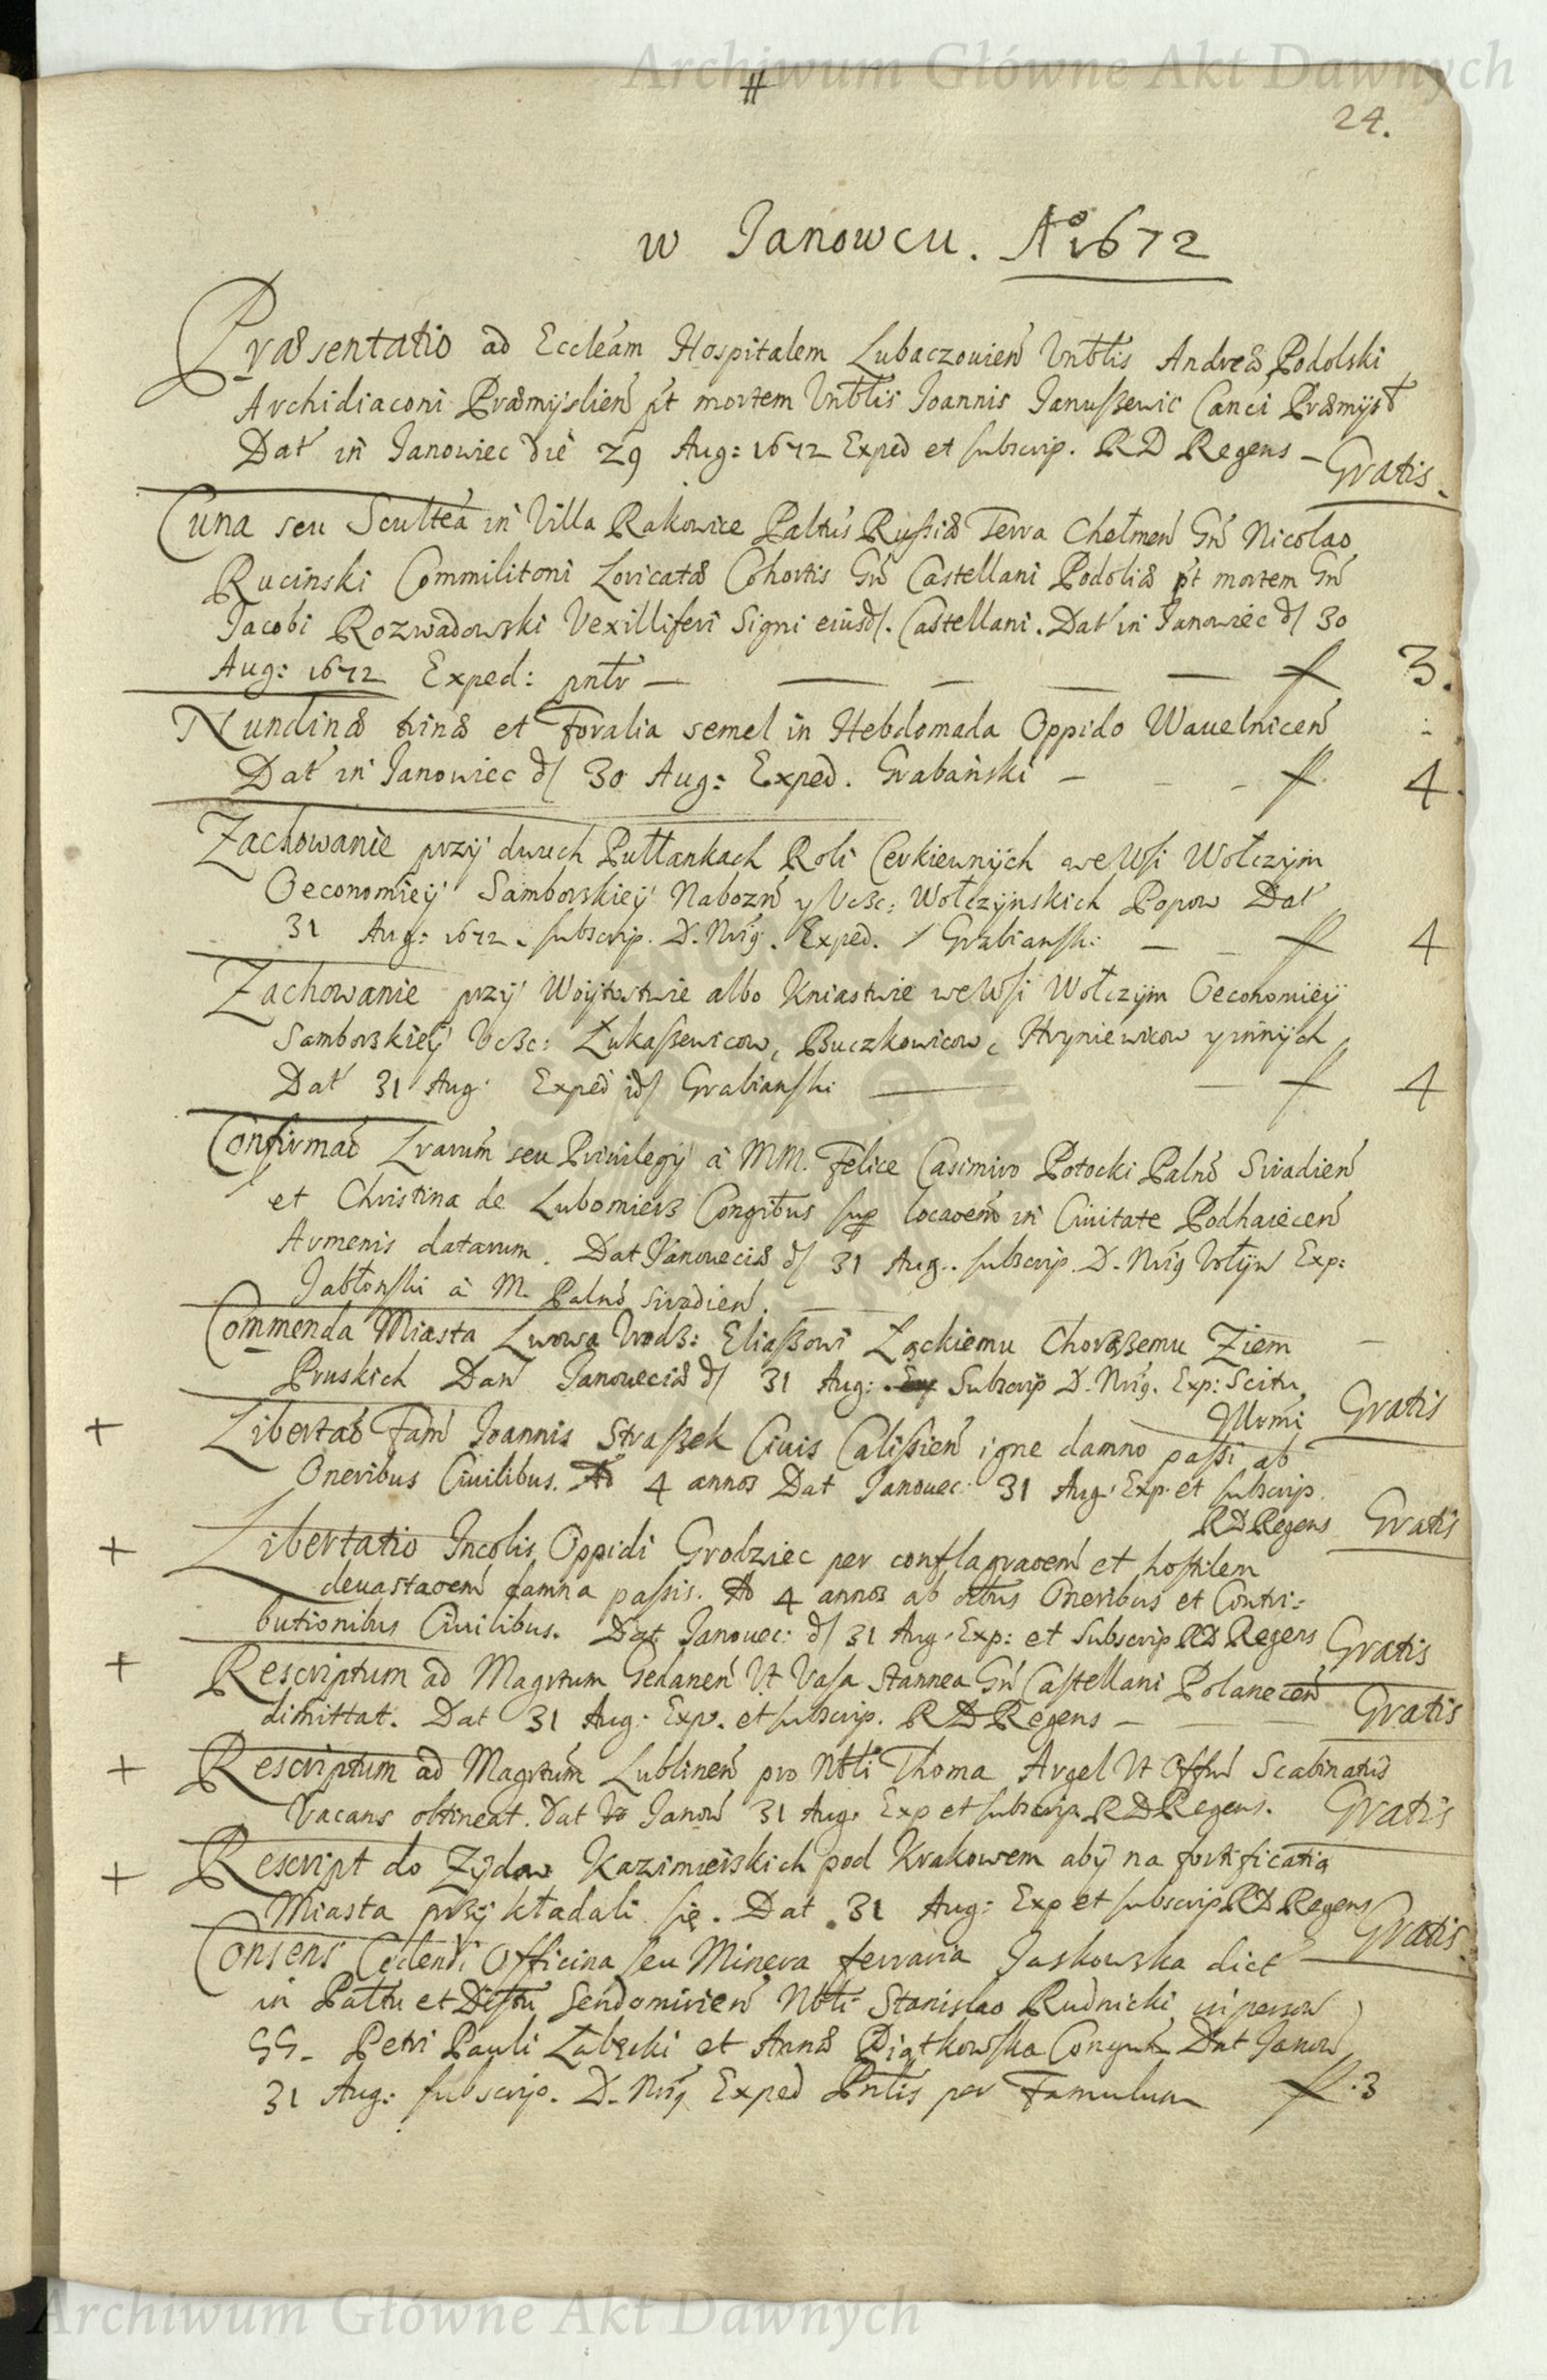 Archiwum Główne Akt Dawnych
#
24.
w Janowcu. Aº 1672
Præsentatio ad Eccleam Hospitalem Lubaczouien Vnblis Andreæ Podolski
Archidiaconi Præmyslien pt mortem Vnblis Joannis Janußewic Canci Præmysł
Dat in Janowiec die 29 Aug: 1672 Exped et subscrip. RD Regens – Gratis.
Cuna seu Scultea in Villa Rakowice Paltus Rußiæ Terra Chełmen Gn Nicolao
Rucinski Commilitoni Loricatæ Cohortis Gn Castellani Podoliæ pt mortem Gn
Jacobi Rozwadowski Vexilliferi Signi eiusd. Castellani. Dat in Janowiec d 30
Aug: 1672 Exped: pntr — — — — — f 3.
Nundinæ binæ et Foralia semel in Hebdomada Oppido Wauelnicen
Dat in Janowiec d 30 Aug: Exped. Grabański – – – f. 4.
Zachowanie przy dwuch Pułłankach Roli Cerkiewnych we Wsi Wołczym
Oeconomiey Samborskiey Nabozn y Vcʒc: Wołczynskich Popow Dat
31 Aug: 1672. subscrip. D. Nrig. Exped. Grabianski — – f 4
Zachowanie przy Woytostwie albo Kniastwie we Wsi Wołczym Oeconomiey
Samborskiey Vcʒc: Łukaßewicow, Buczkowicow, Hryniewicow y innych
Dat 31 Aug: Exped id Grabianski — – f 4
Confirmao Lrarum seu Priuilegy à MM. Felice Casimiro Potocki Palno Siradien
et Christina de Lubomierʒ Congibus sup locaoem in Ciuitate Podhaiecen
Armenis datarum. Dat Janoueciæ d 31 Aug. subscrip. D. Nrig Exp:
Jabłonski à M. Palno Siradien.
Commenda Miasta Lwowa Vrodʒ: Eliaßowi Łąckiemu Chorążemu Ziem —
Pruskich Dan Janoueciæ d 31 Aug: Subscrip D. Nrig. Exp: Scitu
Gratis
+ Libertao Fam Joannis Straßek Ciuis Calißien igne damno paßi ab
Oneribus Ciuilibus. Ad 4 annos Dat Janouec: 31 Aug: Exp. et subscrip.
RD Regens Gratis
+ Libertatio Incolis Oppidi Grodziec per conflagraoem et hostilem
deuastaoem damna paßis. Ad 4 annos ab oibus Oneribus et Contri:
butionibus Ciuilibus. Dat Janouec: d 31 Aug: Exp: et Subscrip RD Regens Gratis
+ Rescriptum ad Magrtum Gedanen Vt Vasa stannea Gn Castellani Polanecen
dimittat. Dat 31 Aug: Exp. et subscrip. RD Regens – — — Gratis
+ Rescriptum ad Magrtum Lublinen pro Nbli Thoma Argel Vt Offm Scabinatus
Vacans obtineat. Dat Janow 31 Aug: Exp et subscrip. RD Regens. Gratis
+ Rescript do Zydow Kazimierskich pod Krakowem aby na fortificatią
Miasta przykładali się. Dat 31 Aug: Exp et subscrip RD Regens Gratis.
Consens Cedendi Officina seu Minera ferraria Jaskowska dict
in Paltu et Distu Sendomirien Nbli Stanislao Rudnicki in person
GG. Petri Pauli Łabęcki et Annæ Piątkowska Coniugum Dat Janow
31 Aug: subscrip. D. Nrig Exped Pntis per Famulum f. 3
Archiwum Główne Akt Dawnych